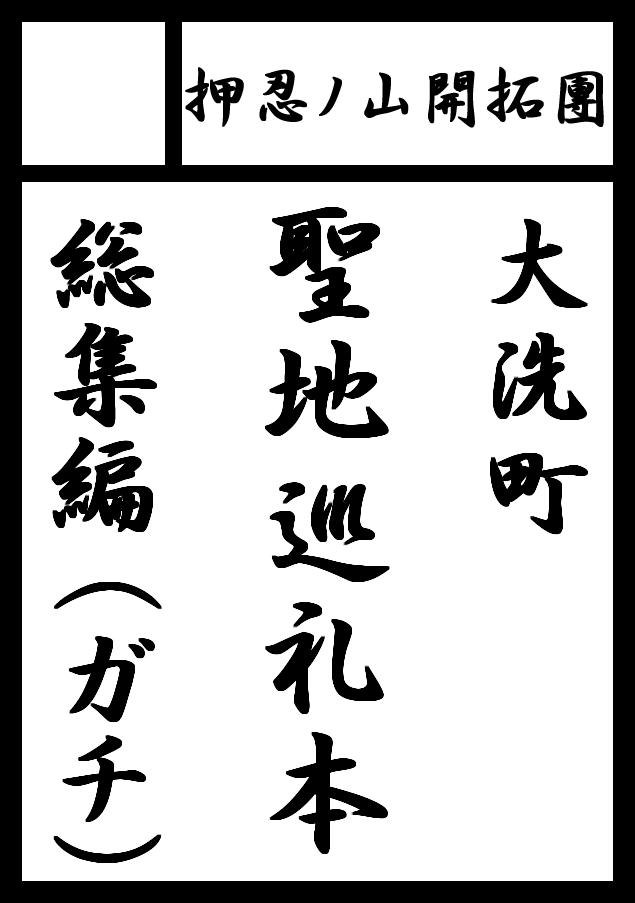 押忍ノ山開拓團
大洗町
聖地巡礼本
総集編（ガチ）